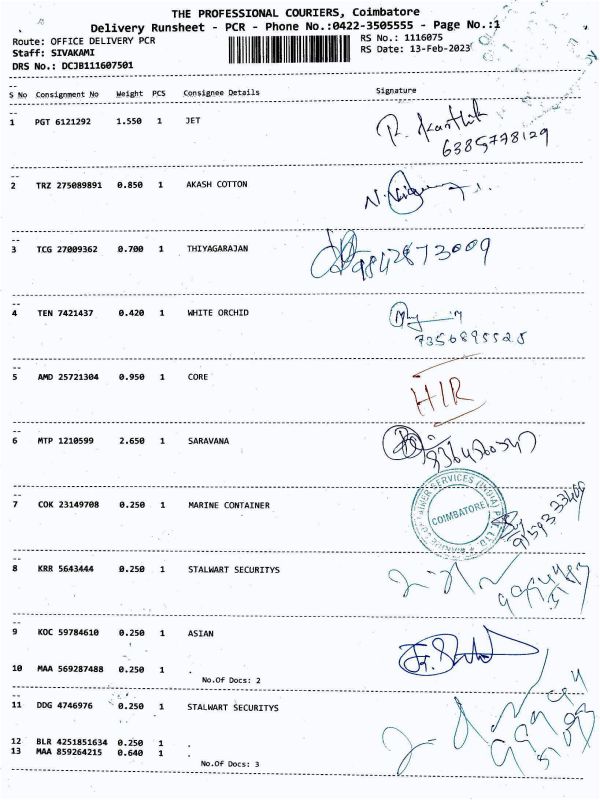 THE PROFESSIONAL COURIERS, Coimbatore
Delivery Runsheet - PCR - Phone No.:0422-3505555 - Page No.:1
Route: OFFICE DELIVERY PCR
RS No.: 1116075
Staff: SIVAKAMI
RS Date: 13-Feb-2023
DRS No.: DCJB111607501
S No Consignment No Weight PCS Consignee Details Signature
1 PGT 6121292 1.550 1 JET
R. Karthik
6385778129
2 TRZ 275089891 0.850 1 AKASH COTTON
3 TCG 27009362 0.700 1 THIYAGARAJAN
9842873009
4 TEN 7421437 0.420 1 WHITE ORCHID
7356895525
5 AMD 25721304 0.950 1 CORE
HIR
6 MTP 1210599 2.650 1 SARAVANA
7 COK 23149708 0.250 1 MARINE CONTAINER
COIMBATORE
8 KRR 5643444 0.250 1 STALWART SECURITYS
9 KOC 59784610 0.250 1 ASIAN
10 MAA 569287488 0.250 1 .
No.Of Docs: 2
11 DDG 4746976 0.250 1 STALWART SECURITYS
12 BLR 4251851634 0.250 1 .
13 MAA 859264215 0.640 1 .
No.Of Docs: 3